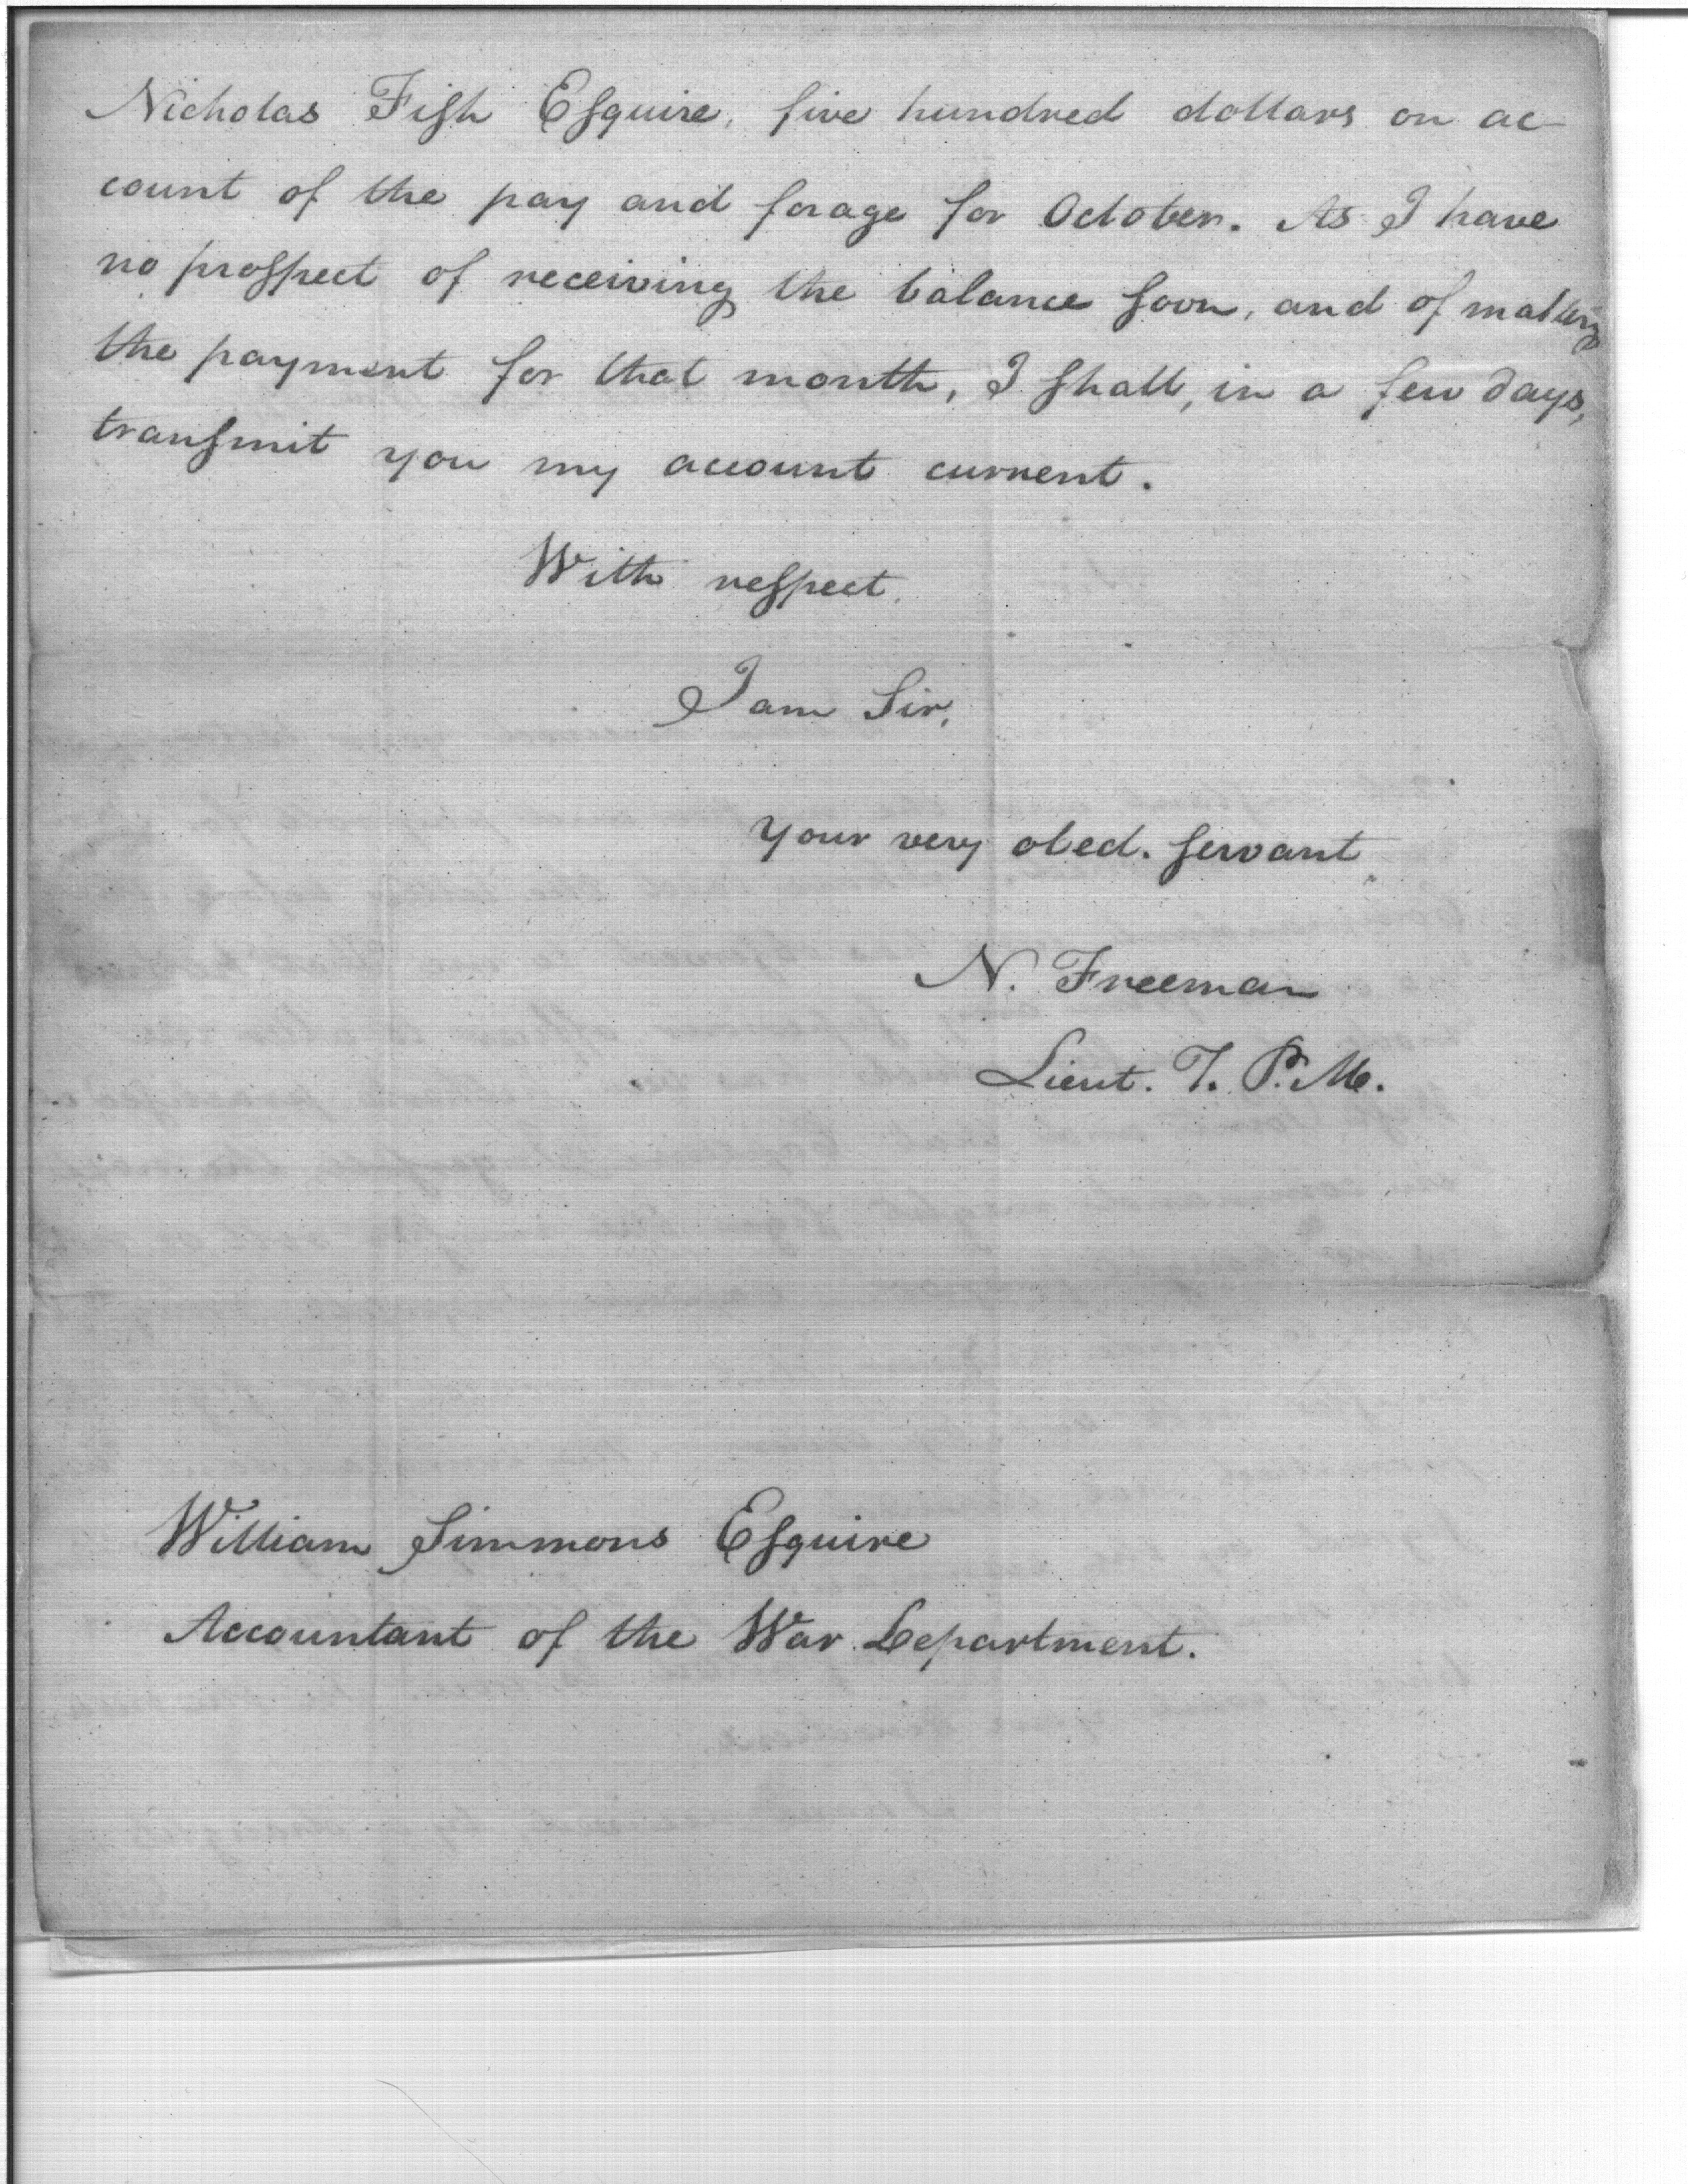 Nicholas Fiſh Eſquire, five hundred dollars on ac-
count of the pay and forage for October. As I have
no proſpect of receiving the balance ſoon, and of making
the payment for that month, I ſhall, in a few days,
tranſmit you my account current.
With reſpect,
I am Sir,
your very obed. ſervant,
N. Freeman
Lieut. T. P. M.
William Simmons Eſquire
Accountant of the War Department.